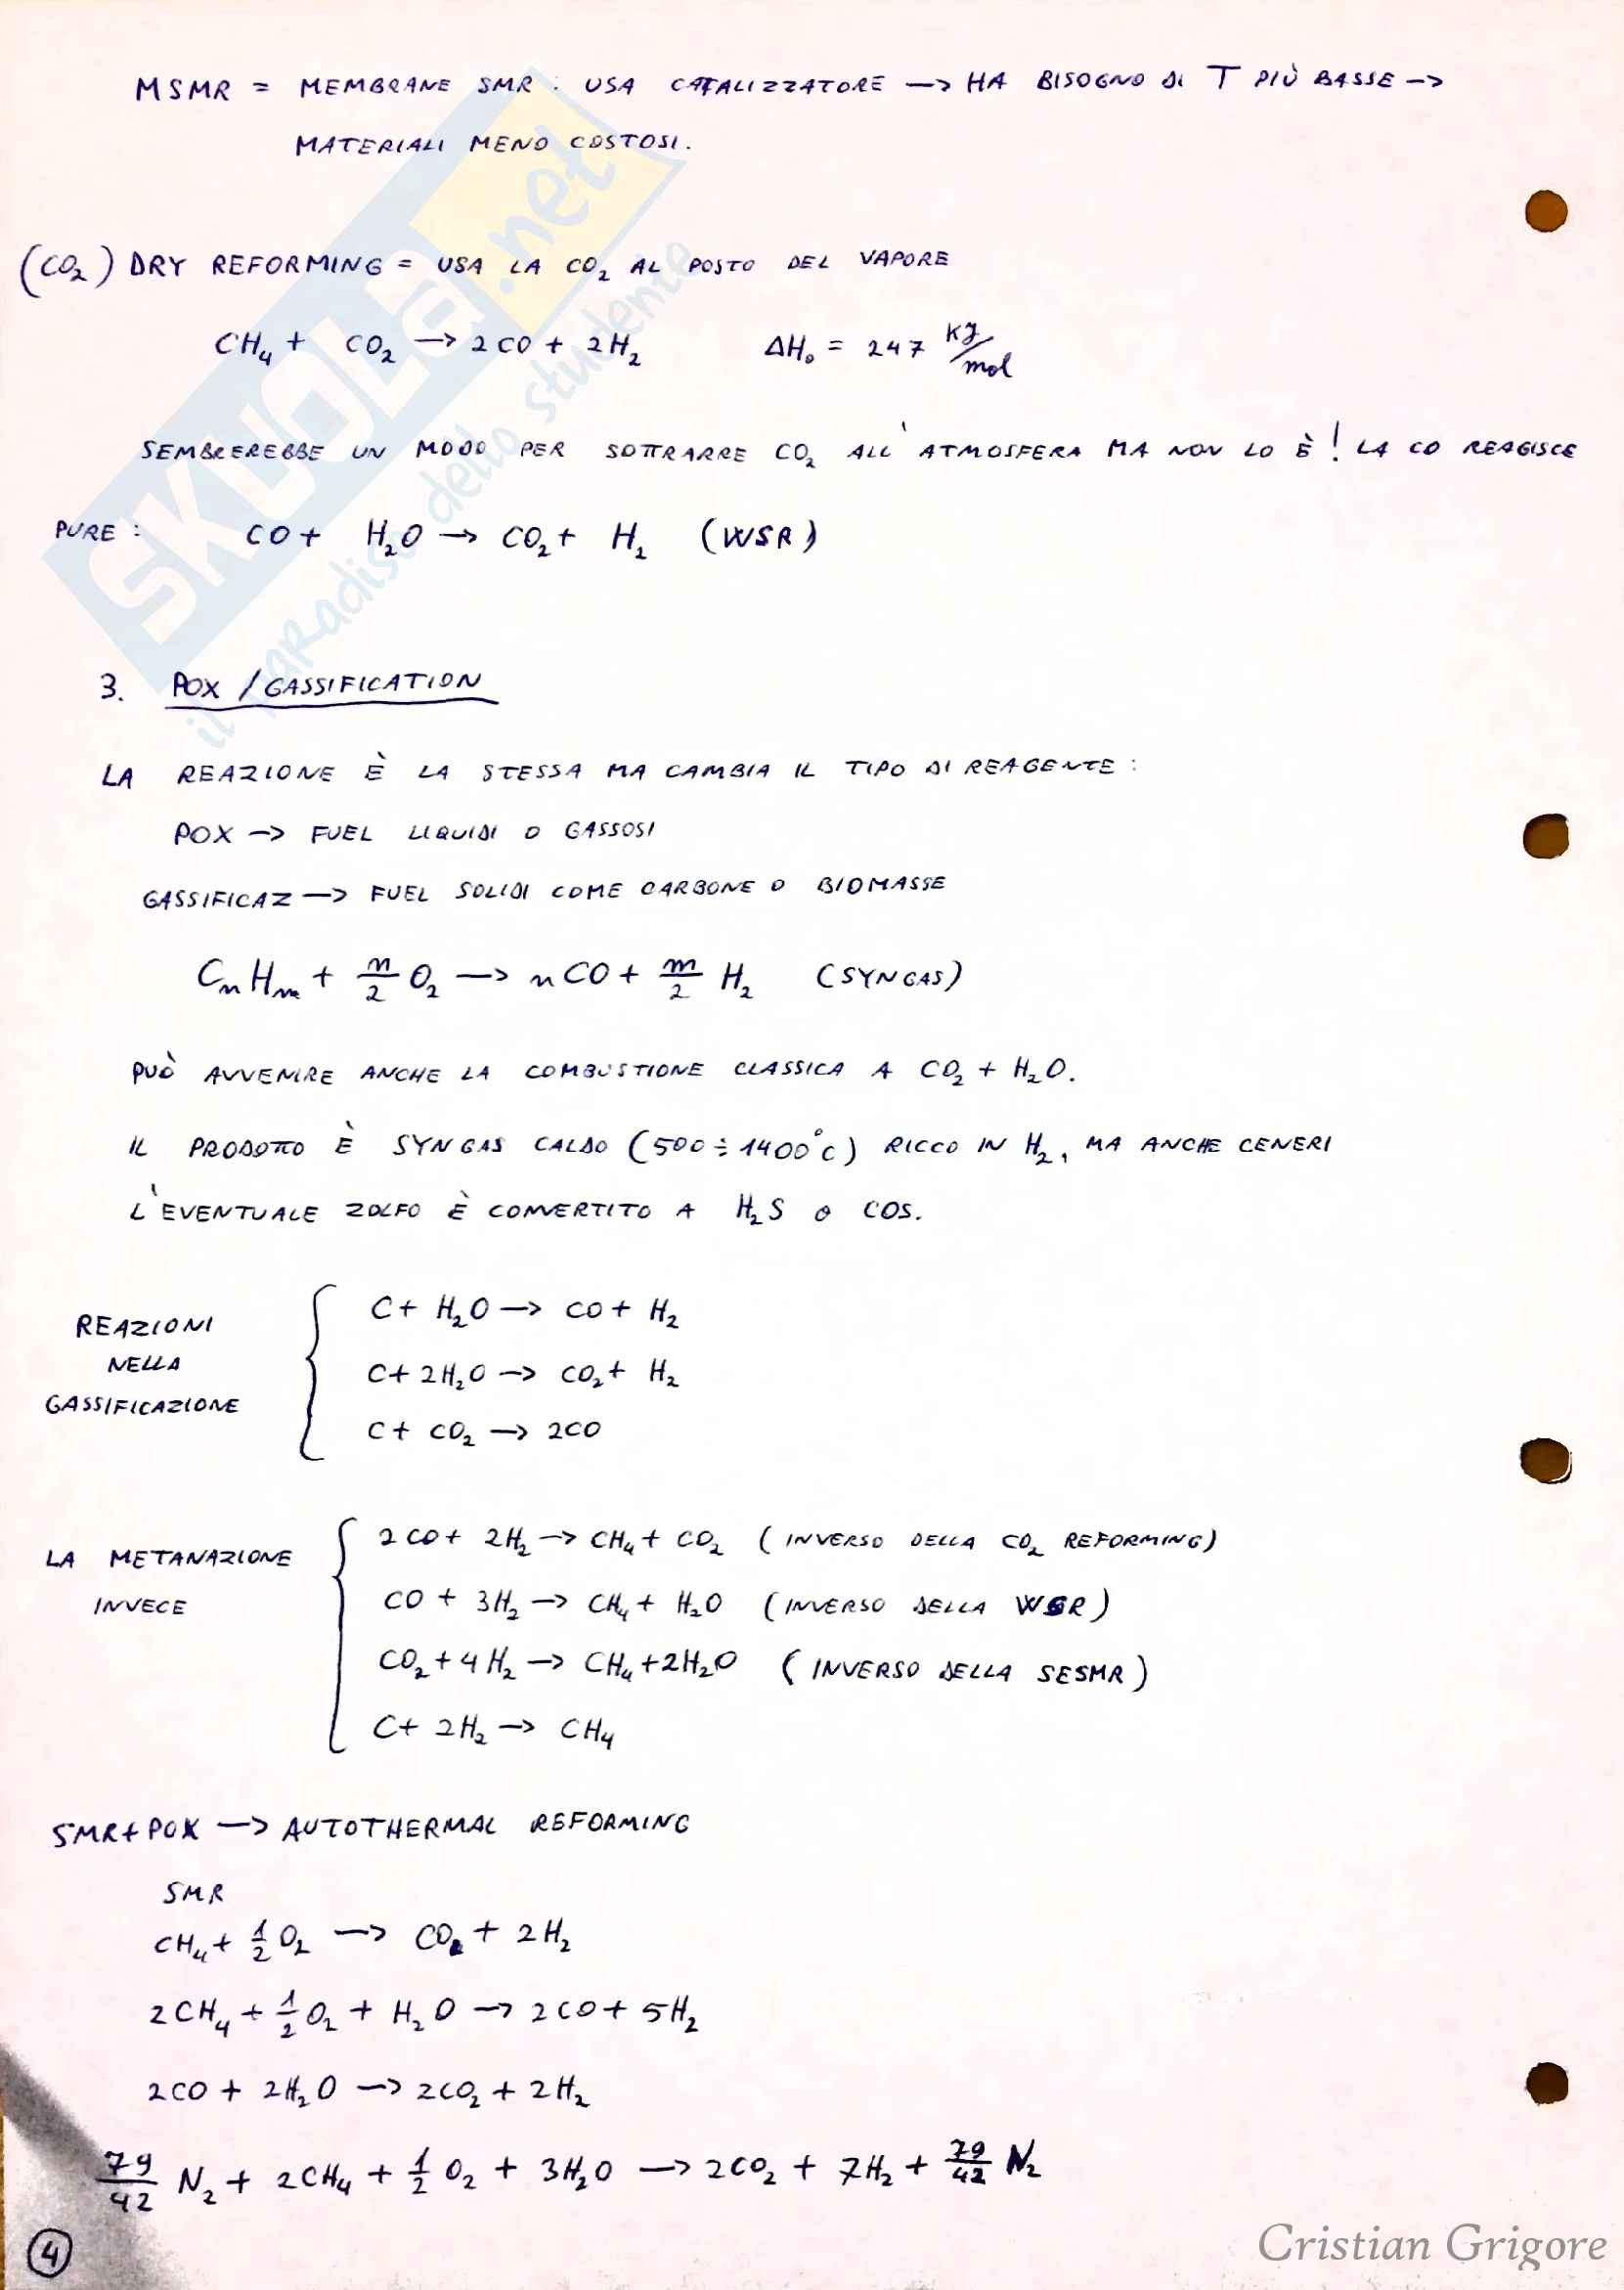 MSMR = MEMBRANE SMR : USA CATALIZZATORE —> HA BISOGNO DI T PIÙ BASSE —>
MATERIALI MENO COSTOSI.
(CO₂) DRY REFORMING = USA LA CO₂ AL POSTO DEL VAPORE
CH₄ + CO₂ —> 2CO + 2H₂ ΔH₀ = 247 KJ/mol
SEMBREREBBE UN MODO PER SOTTRARRE CO₂ ALL'ATMOSFERA MA NON LO È! LA CO REAGISCE
PURE : CO + H₂O —> CO₂ + H₂ (WSR)
3. POX / GASSIFICATION
LA REAZIONE È LA STESSA MA CAMBIA IL TIPO DI REAGENTE :
POX —> FUEL LIQUIDI O GASSOSI
GASSIFICAZ —> FUEL SOLIDI COME CARBONE O BIOMASSE
CₙHₘ + n/2 O₂ —> nCO + m/2 H₂ (SYNGAS)
PUÒ AVVENIRE ANCHE LA COMBUSTIONE CLASSICA A CO₂ + H₂O.
IL PRODOTTO È SYNGAS CALDO (500÷1400°C) RICCO IN H₂, MA ANCHE CENERI
L'EVENTUALE ZOLFO È CONVERTITO A H₂S O COS.
REAZIONI NELLA GASSIFICAZIONE
C + H₂O —> CO + H₂
C + 2H₂O —> CO₂ + H₂
C + CO₂ —> 2CO
LA METANAZIONE INVECE
2CO + 2H₂ —> CH₄ + CO₂ (INVERSO DELLA CO₂ REFORMING)
CO + 3H₂ —> CH₄ + H₂O (INVERSO DELLA WSR)
CO₂ + 4H₂ —> CH₄ + 2H₂O (INVERSO DELLA SESMR)
C + 2H₂ —> CH₄
SMR + POX —> AUTOTHERMAL REFORMING
SMR
CH₄ + 1/2 O₂ —> CO + 2H₂
2CH₄ + 1/2 O₂ + H₂O —> 2CO + 5H₂
2CO + 2H₂O —> 2CO₂ + 2H₂
79/42 N₂ + 2CH₄ + 1/2 O₂ + 3H₂O —> 2CO₂ + 7H₂ + 79/42 N₂
4
Cristian Grigore
SKUOLA.net
il paradiso dello studente